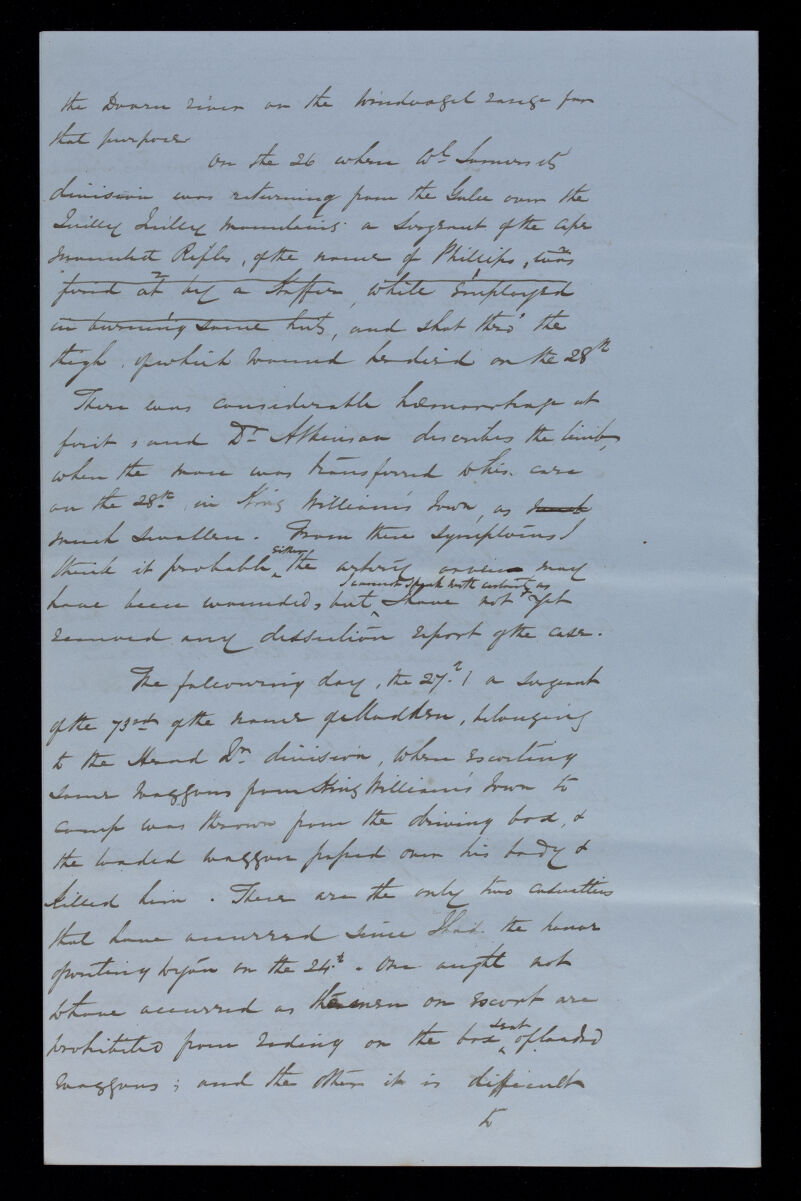 the Doorn river on the Windvogel range for
that purpose
On the 26 when Col. Somersets
division was returning from the Gulu over the
Quilly Quilly mountains a Sergeant of the Cape
Mounted Rifles, of the name of Phillips, was
fired at by a Kaffir, while employed
in burning some huts, and shot thro' the
thigh, of which wound he died on the 28th
There was considerable hæmorrhage at
first, and Dr Atkinson describes the limb,
when the man was transferred to his care
on the 28th, in King William's Town, as
much swollen. From these symptoms I
think it probable either the artery or vein may
have been wounded, but I cannot speak with certainty as I have not yet
received any dissection report of the case.
The following day, the 27th, a sergeant
of the 73rd of the name of Madden, belonging
to the Head Qr. division, when escorting
some waggons from King William's Town to
camp was thrown from the driving box, &
the loaded waggon passed over his body &
killed him. These are the only two casualties
that have occurred since I had the honor
of writing to you on the 24th. One ought not
to have occurred as the men on escort are
prohibited from riding on the box seat of loaded
waggons; and the other it is difficult
to